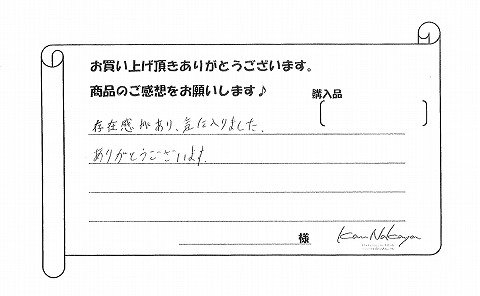 お買い上げ頂きありがとうございます。
商品のご感想をお願いします♪
購入品
存在感があり、気に入りました。
ありがとうございます。
様
Kan Nakaya